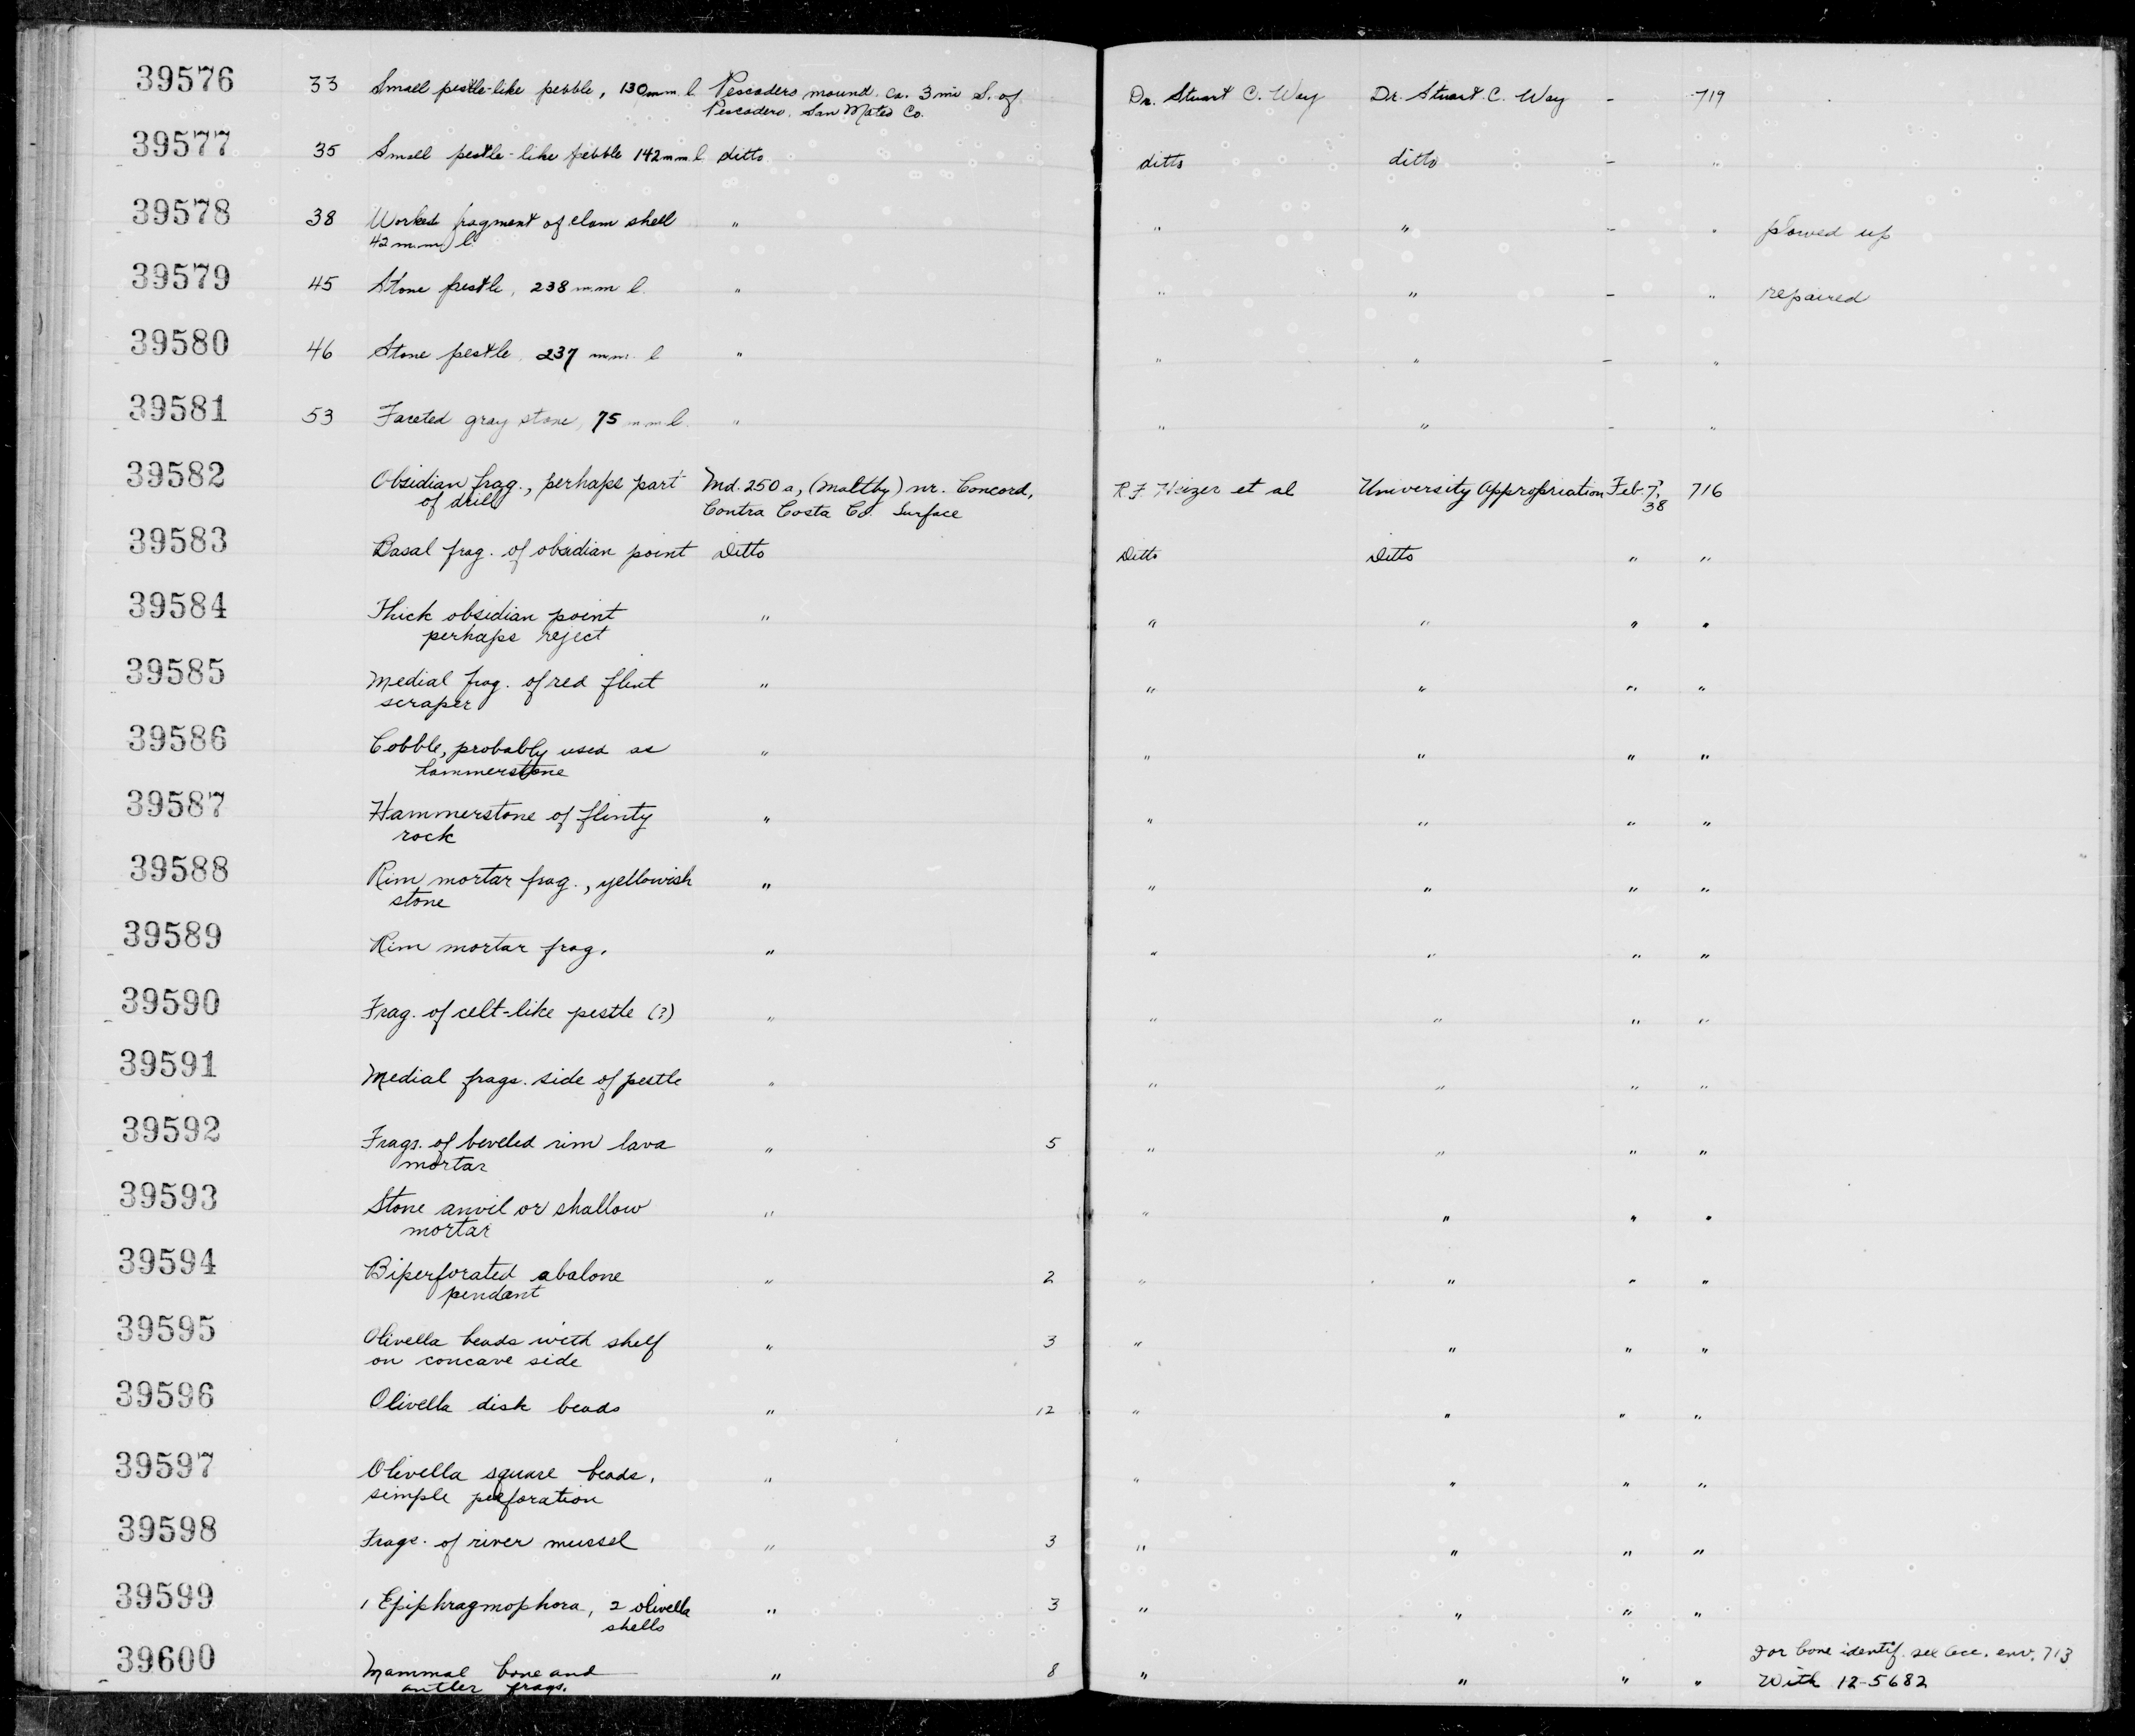 39576 33 Small pestle-like pebble, 130 mm. l. Pescadero mound. ca. 3 mi S. of Dr. Stuart C. Way Dr. Stuart C. Way - 719
Pescadero, San Mateo Co.
39577 35 Small pestle-like pebble 142 mm. l. ditto ditto ditto - "
39578 38 Worked fragment of clam shell " " " - " plowed up
42 m.m. l
39579 45 Stone pestle, 238 mm l. " " " - " repaired
39580 46 Stone pestle, 237 mm. l " " " - "
39581 53 Faceted gray stone, 75 mm l. " " " - "
39582 Obsidian frag., perhaps part Md. 250a, (Maltby) nr. Concord, R.F. Heizer et al University Appropriation Feb. 7, 716
of drill Contra Costa Co. Surface 38
39583 Basal frag. of obsidian point Ditto Ditto Ditto " "
39584 Thick obsidian point " " " " "
perhaps reject
39585 Medial frag. of red flint " " " " "
scraper
39586 Cobble, probably used as " " " " "
hammerstone
39587 Hammerstone of flinty " " " " "
rock
39588 Rim mortar frag., yellowish " " " " "
stone
39589 Rim mortar frag. " " " " "
39590 Frag. of celt-like pestle (?) " " " " "
39591 Medial frags. side of pestle " " " " "
39592 Frags. of beveled rim lava " 5 " " " "
mortar
39593 Stone anvil or shallow " " " " "
mortar
39594 Biperforated abalone " 2 " " " "
pendant
39595 Olivella beads with shelf " 3 " " " "
on concave side
39596 Olivella disk beads " 12 " " " "
39597 Olivella square beads, " " " " "
simple perforation
39598 Frags. of river mussel " 3 " " " "
39599 1 Epiphragmophora, 2 olivella " 3 " " " "
shells
For bone identif. see Acc. env. 713
39600 Mammal bone and " 8 " " " " With 12-5682
antler frags.